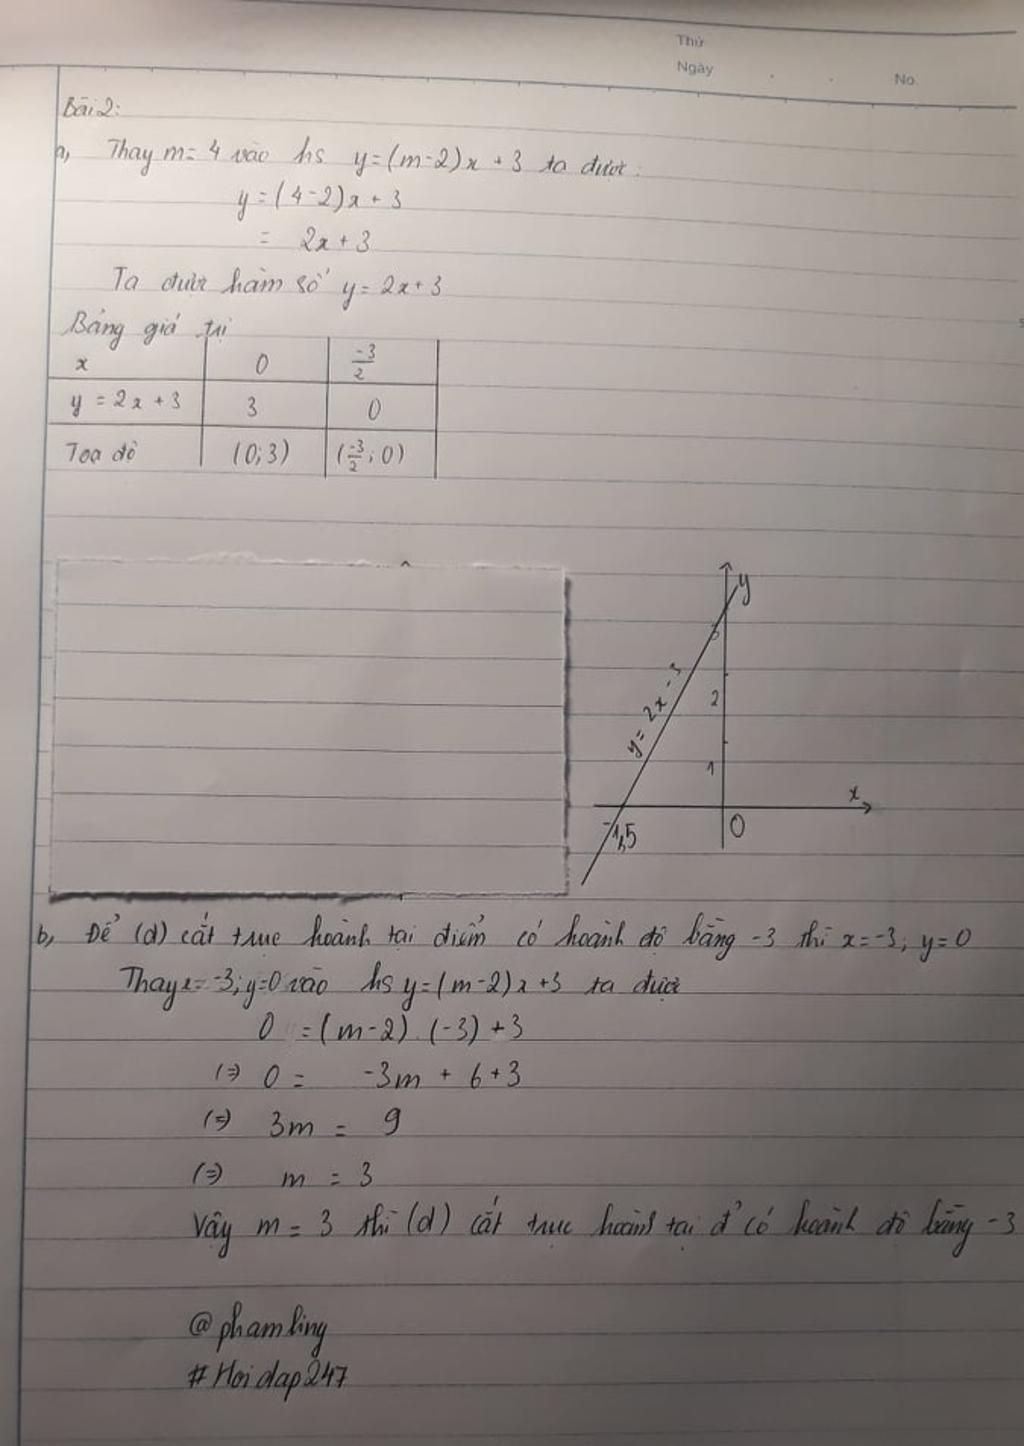 Thứ
Ngày
No.
Bài 2:
a, Thay m = 4 vào hs y = (m-2)x + 3 ta được:
y = (4-2)x + 3
= 2x + 3
Ta được hàm số y = 2x + 3
Bảng giá trị
x 0 -3/2
y = 2x + 3 3 0
Toạ độ (0;3) (-3/2; 0)
y
3
y = 2x - 3
2
1
x
-1,5
O
b, Để (d) cắt trục hoành tại điểm có hoành độ bằng -3 thì x = -3; y = 0
Thay x = -3; y = 0 vào hs y = (m-2)x + 3 ta được
0 = (m-2).(-3) + 3
(=) 0 = -3m + 6 + 3
(=) 3m = 9
(=) m = 3
Vậy m = 3 thì (d) cắt trục hoành tại đ' có hoành độ bằng -3
@phamling
#Hoidap247